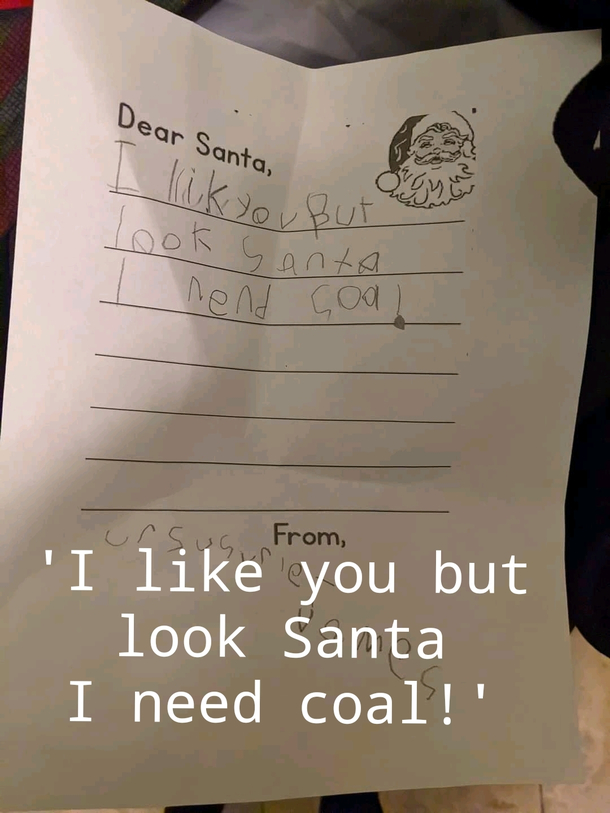 Dear Santa,
I likk you But
look santa
I nend coal
From,
'I like you but
look Santa
I need coal!'